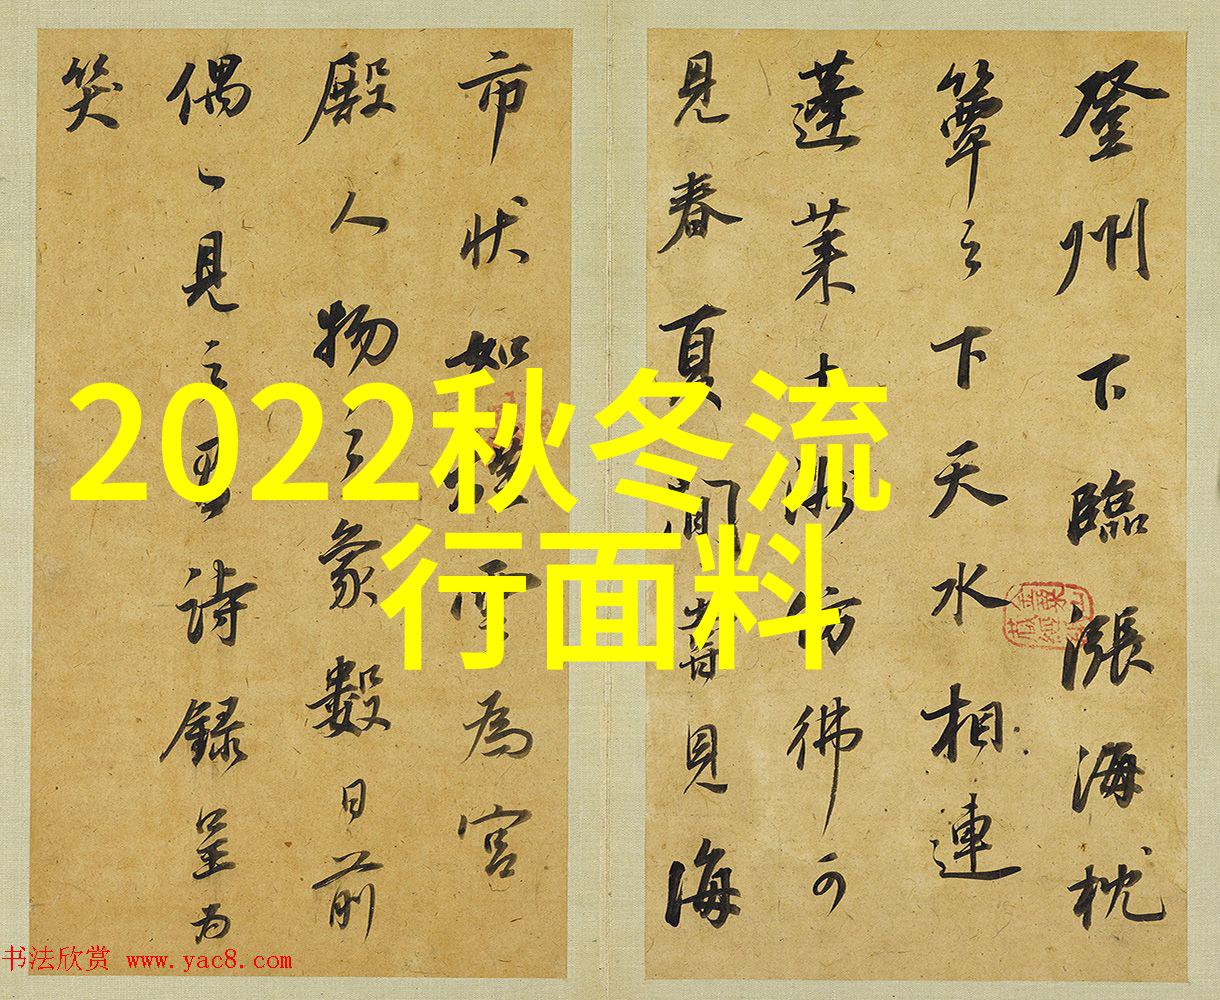 登州下臨漲海枕
簟之下天水相連
蓬莱十洲仿彿可
見春夏間嘗見海
市状如為宮
殿人物之象數日前
偶一見之有詩録呈為
笑
2022秋冬流
行面料
书法欣赏 www.yac8.com